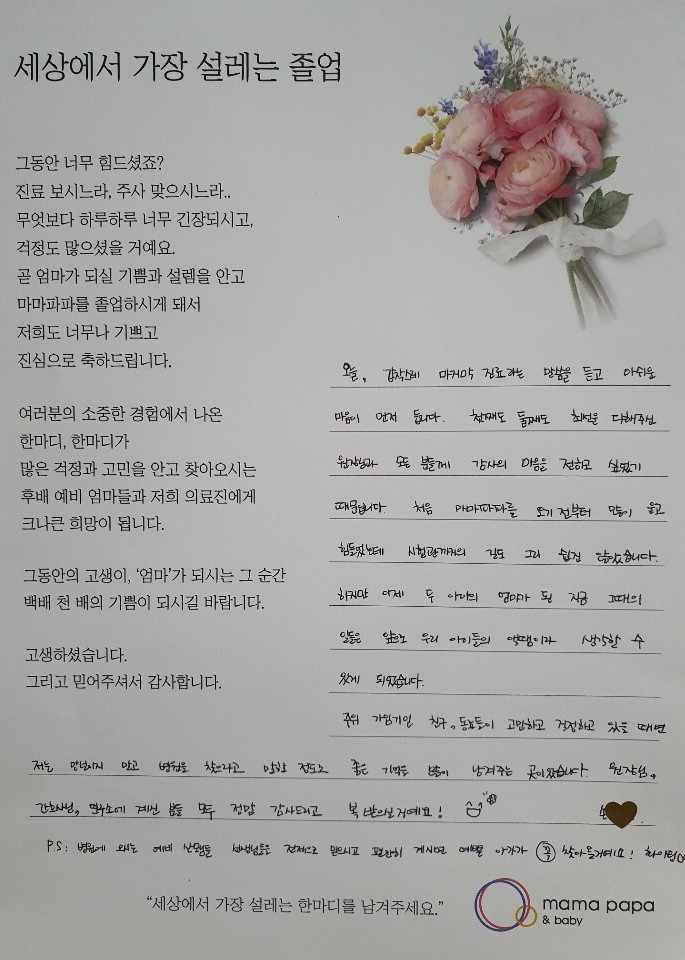 세상에서 가장 설레는 졸업
그동안 너무 힘드셨죠?
진료 보시느라, 주사 맞으시느라..
무엇보다 하루하루 너무 긴장되시고,
걱정도 많으셨을 거예요.
곧 엄마가 되실 기쁨과 설렘을 안고
마마파파를 졸업하시게 돼서
저희도 너무나 기쁘고
진심으로 축하드립니다.
여러분의 소중한 경험에서 나온
한마디, 한마디가
많은 걱정과 고민을 안고 찾아오시는
후배 예비 엄마들과 저희 의료진에게
크나큰 희망이 됩니다.
그동안의 고생이, '엄마'가 되시는 그 순간
백배 천 배의 기쁨이 되시길 바랍니다.
고생하셨습니다.
그리고 믿어주셔서 감사합니다.
오늘, 갑작스레 마지막 진료라는 말씀을 듣고 아쉬운
마음이 먼저 듭니다. 첫째도 둘째도 최선을 다해주신
원장님과 모든 분들께 감사의 마음을 전하고 싶었기
때문입니다. 처음 마마파파를 오기 전부터 많이 울고
힘들었는데 시험관까지의 길도 그리 쉽진 않았습니다.
하지만 이제 두 아이의 엄마가 된 지금 그때의
일들은 앞으로 우리 아이들의 액땜이라 생각할 수
있게 되었습니다.
주위 가임기인 친구, 동료들이 고민하고 걱정하고 있을 때면
저는 망설이지 말고 병원을 찾으라고 말할 정도로 좋은 기억을 많이 남겨주는 곳이었습니다. 원장님,
간호사님, 연구소에 계신 분들 모두 정말 감사드리고 복 받으실거예요!
P.S: 병원에 오시는 예비 산모님들 선생님들을 전적으로 믿으시고 편안히 계시면 예쁜 아가가 꼭 찾아올거예요! 화이팅
"세상에서 가장 설레는 한마디를 남겨주세요."
mama papa
& baby